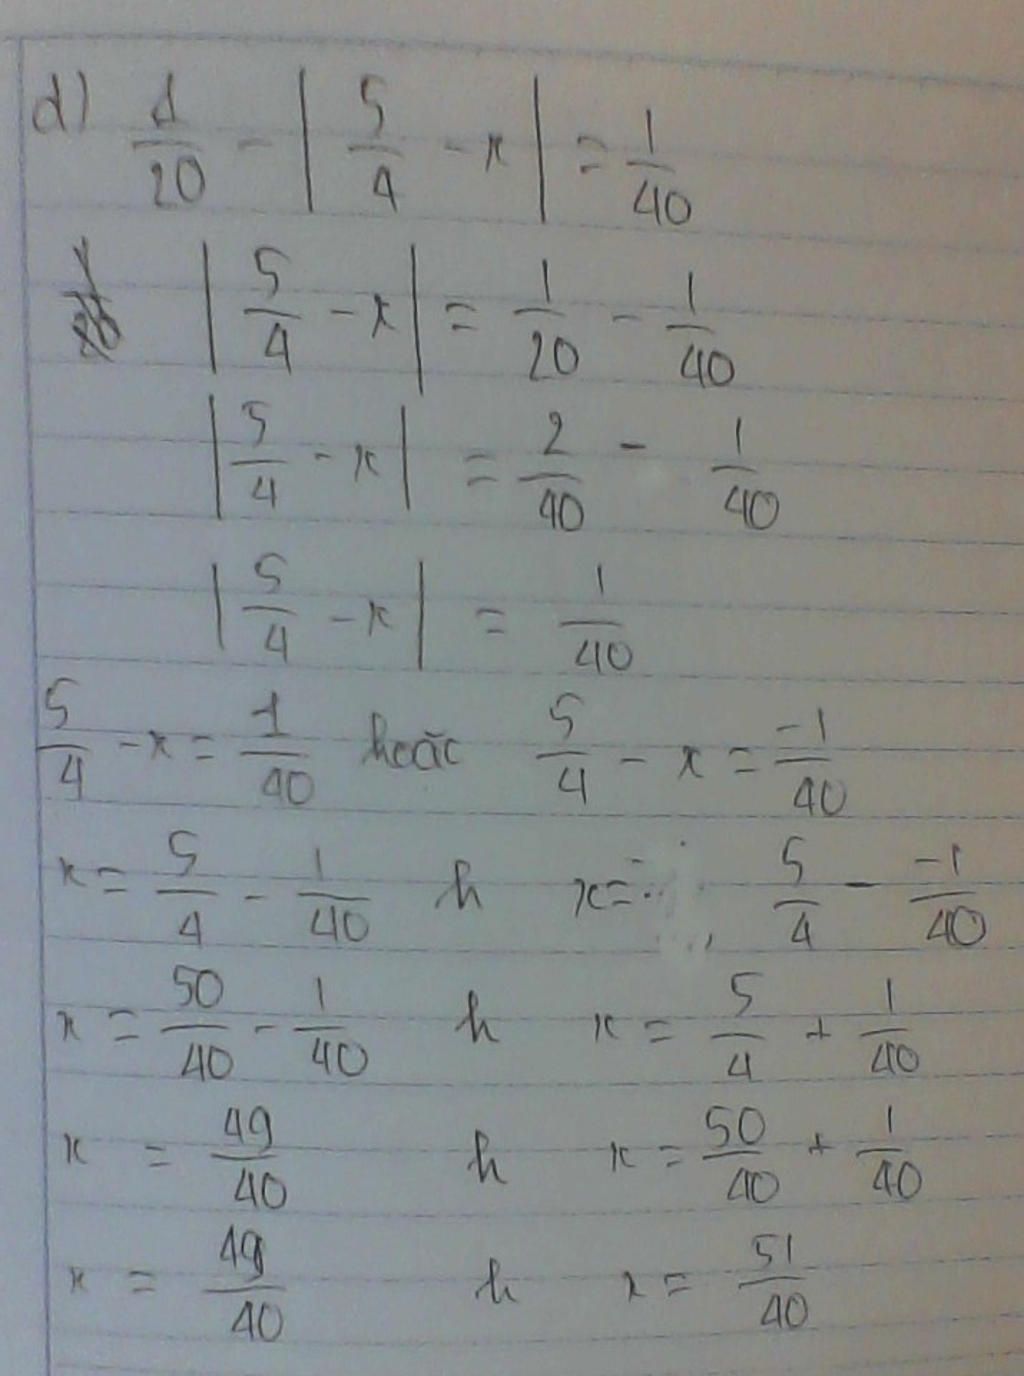 d) 1/20 - | 5/4 - x | = 1/40
| 5/4 - x | = 1/20 - 1/40
| 5/4 - x | = 2/40 - 1/40
| 5/4 - x | = 1/40
5/4 - x = 1/40 hoặc 5/4 - x = -1/40
x = 5/4 - 1/40 h x = 5/4 - -1/40
x = 50/40 - 1/40 h x = 5/4 + 1/40
x = 49/40 h x = 50/40 + 1/40
x = 49/40 h x = 51/40